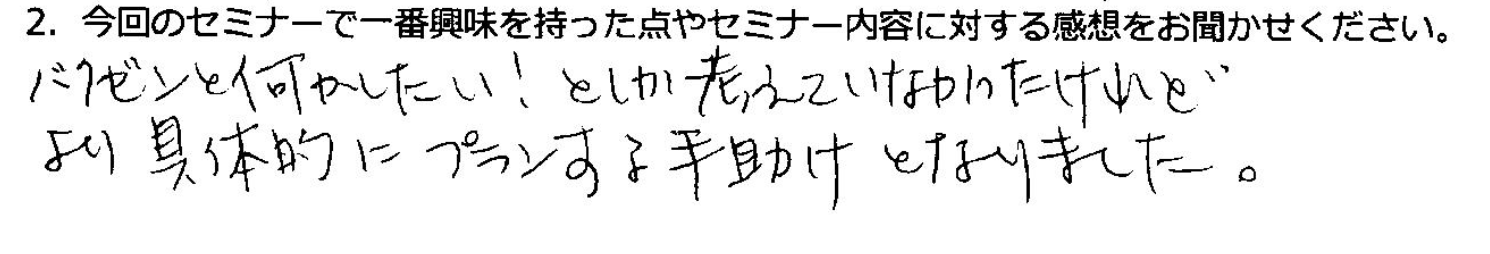 2. 今回のセミナーで一番興味を持った点やセミナー内容に対する感想をお聞かせください。
バクゼンと何かしたい！としか考えていなかったけれど
より具体的にプランする手助けとなりました。